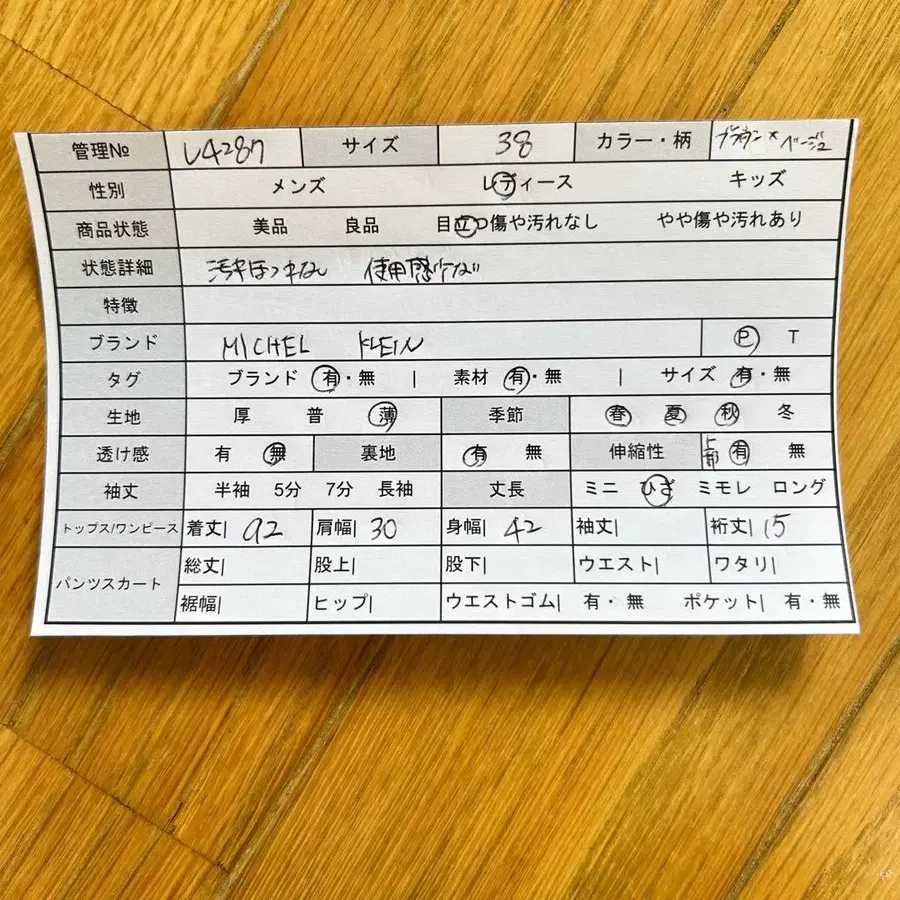 管理№ L4287 サイズ 38 カラー・柄 ブラウン×ベージュ
性別 メンズ レディース キッズ
商品状態 美品 良品 目立つ傷や汚れなし やや傷や汚れあり
状態詳細 汚れほつれなし 使用感少ない
特徴
ブランド MICHEL KLEIN P T
タグ ブランド 有・無 | 素材 有・無 | サイズ 有・無
生地 厚 普 薄 季節 春 夏 秋 冬
透け感 有 無 裏地 有 無 伸縮性 上部 有 無
袖丈 半袖 5分 7分 長袖 丈長 ミニ ひざ ミモレ ロング
トップス/ワンピース 着丈| 92 肩幅| 30 身幅| 42 袖丈| 裄丈| 15
パンツスカート 総丈| 股上| 股下| ウエスト| ワタリ|
裾幅| ヒップ| ウエストゴム| 有・無 ポケット| 有・無